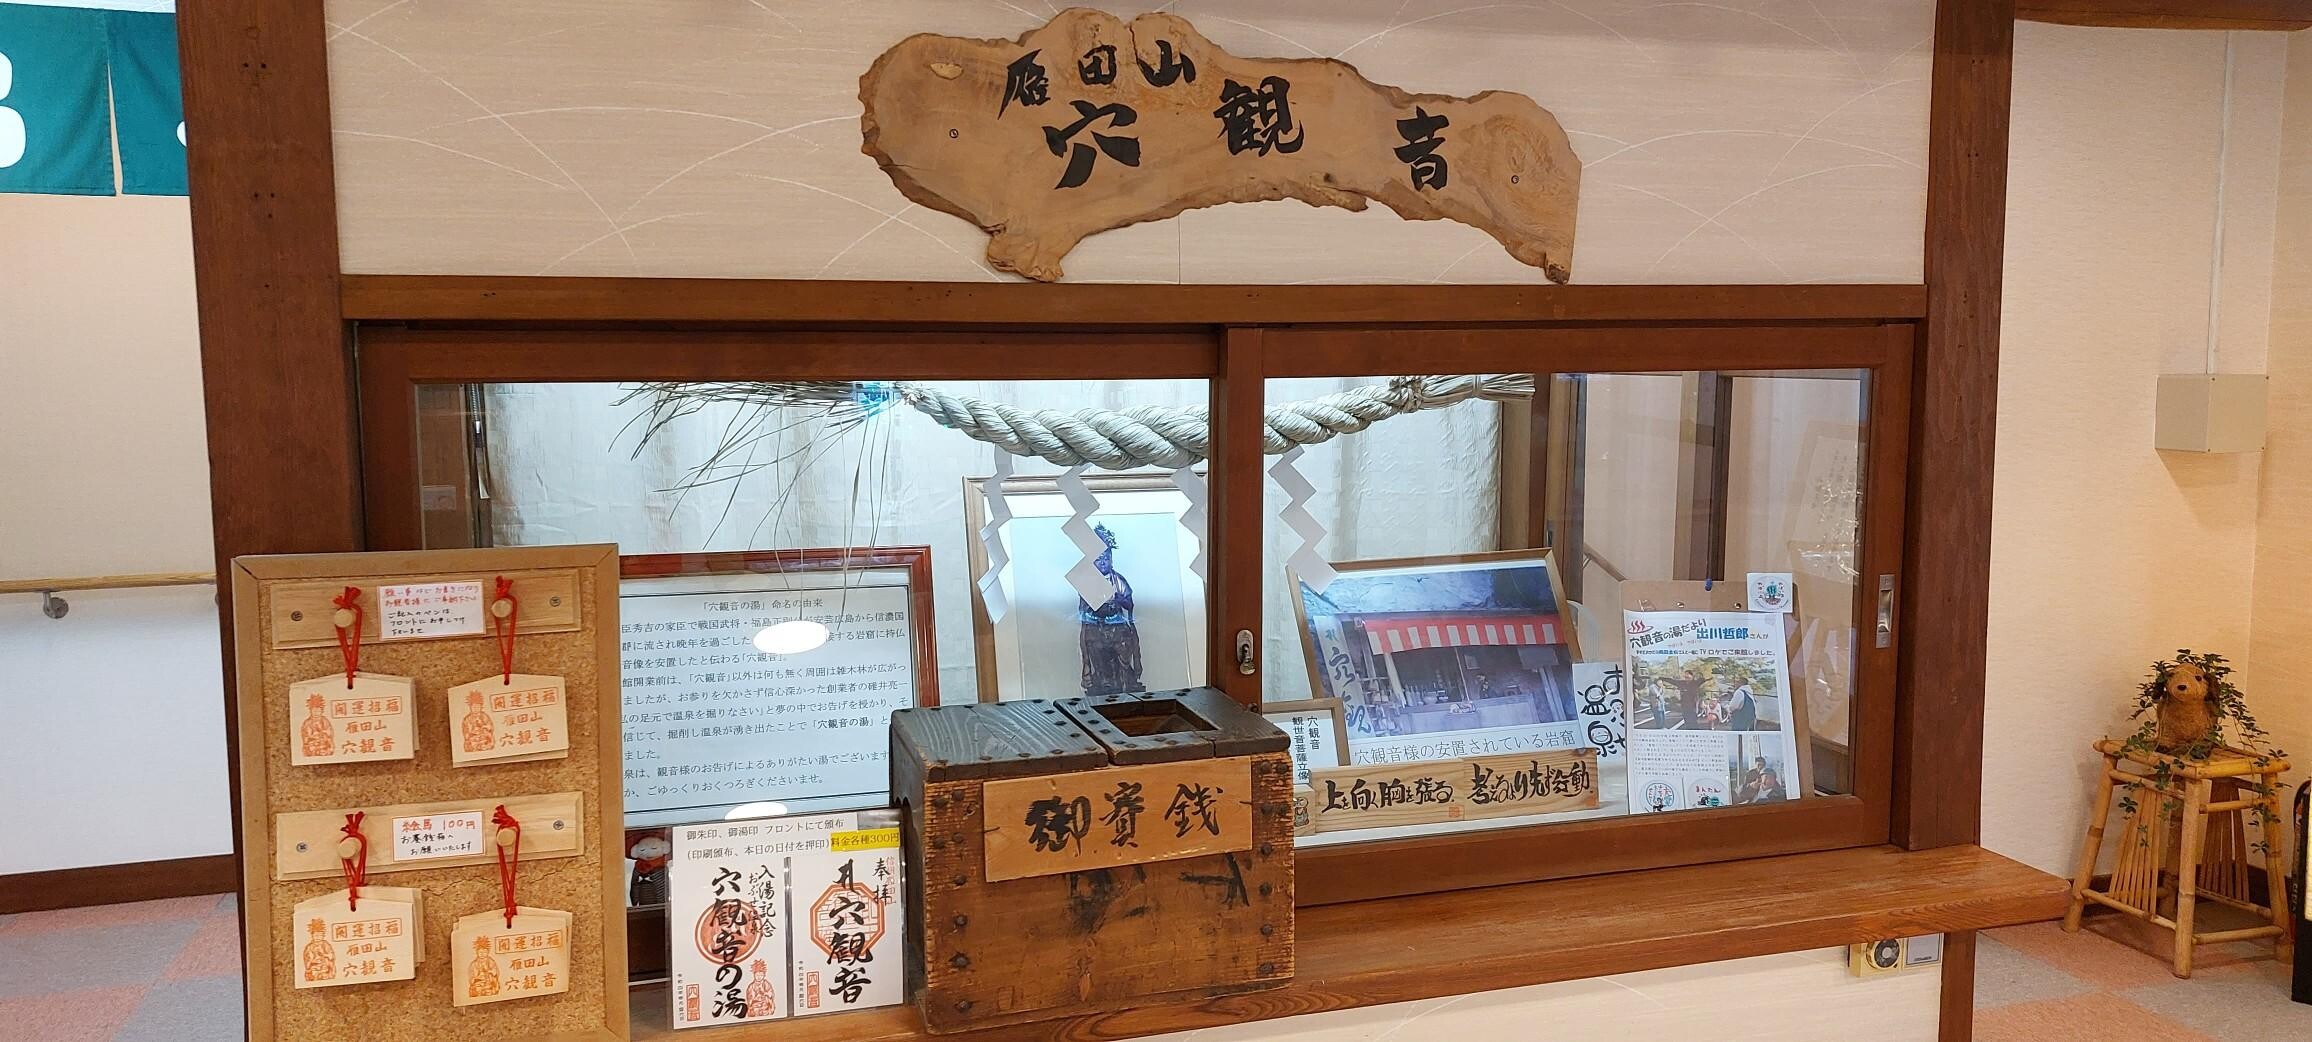 雁田山
穴観音
「穴観音の湯」命名の由来
臣秀吉の家臣で戦国武将・福島正則
安芸広島から信濃国
郡に流され晩年を過ごした
する岩窟に持仏
音像を安置したと伝わる「穴観音」。
館開業前は、「穴観音」以外は何も無く周囲は雑木林が広がっ
ましたが、お参りを欠かさず信心深かった創業者の碓井亮一
私の足元で温泉を掘りなさい」と夢の中でお告げを授かり、そ
信じて、掘削し温泉が湧き出たことで「穴観音の湯」と
ました。
泉は、観音様のお告げによるありがたい湯でございます
か、ごゆっくりおくつろぎくださいませ。
ご記入のペンは
フロントにお申し付け
下さいませ
開運招福
雁田山
穴観音
開運招福
雁田山
穴観音
絵馬 100円
お賽銭箱へ
お願いいたします
開運招福
雁田山
穴観音
開運招福
雁田山
穴観音
御朱印、御湯印 フロントにて頒布
(印刷頒布、本日の日付を押印)
料金各種300円
入湯記念
おぶせ温泉
穴観音の湯
奉拝
月
穴観音
御賽銭
穴観音
観世音菩薩立像
穴観音
穴観音様の安置されている岩窟
上を向く胸を張る
考えるより先ず行動
おぶせ
温泉
穴観音の湯だより
出川哲郎さんが
TVロケでご来館しました。